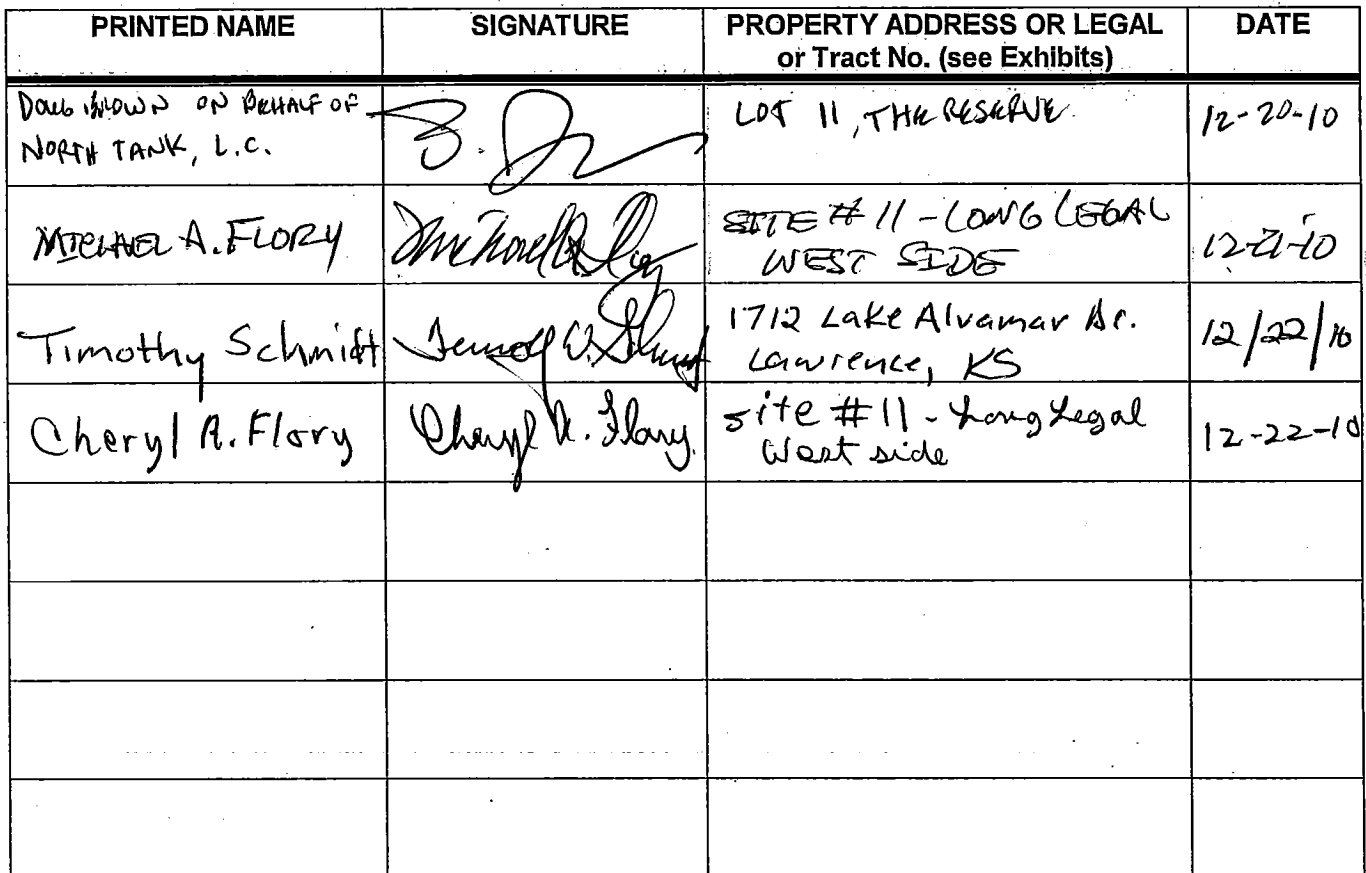 PRINTED NAME
SIGNATURE
PROPERTY ADDRESS OR LEGAL
or Tract No. (see Exhibits)
DATE
DOUG BROWN ON BEHALF OF
NORTH TANK, L.C.
LOT 11, THE RESERVE
12-20-10
MICHAEL A. FLORY
SITE # 11 - LONG LEGAL
WEST SIDE
12-21-10
Timothy Schmidt
1712 Lake Alvamar Dr.
Lawrence, KS
12/22/10
Cheryl A. Flory
Cheryl A. Flory
site # 11 - Long Legal
West side
12-22-10